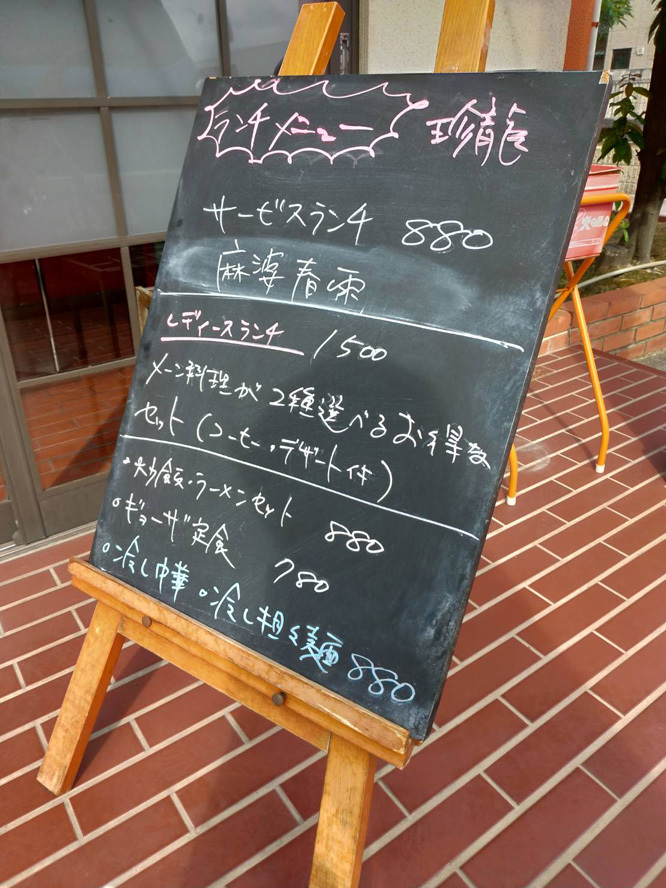 ランチメニュー 珍龍
サービスランチ 880
麻婆春雨
レディースランチ 1500
メーン料理が2種選べるお得な
セット(コーヒー・デザート付)
・炒飯・ラーメンセット 880
・ギョーザ定食 780
・冷し中華 ・冷し担々麺 880